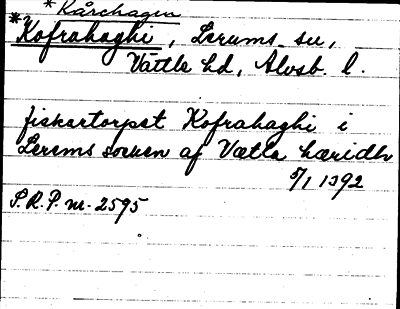 *Kårehagen
*Kofrahaghi, Lerums sn,
Vättle hd, Älvsb. l.
fiskartorpet Kofrahaghi i
Lerems socken af Vætla hæridh
5/1 1392
S.R.P. nr 2595